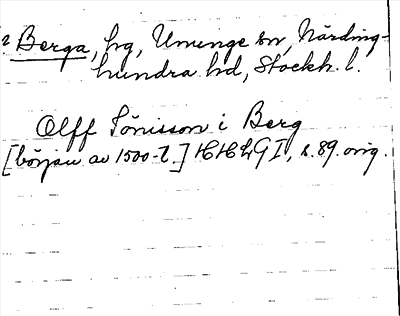 2 Berga, hg, Ununge sn, Närding-
hundra hd, Stockh. l.
Olff Tönisson i Berg
[början av 1500-t.] HHLGI, s. 89. orig.